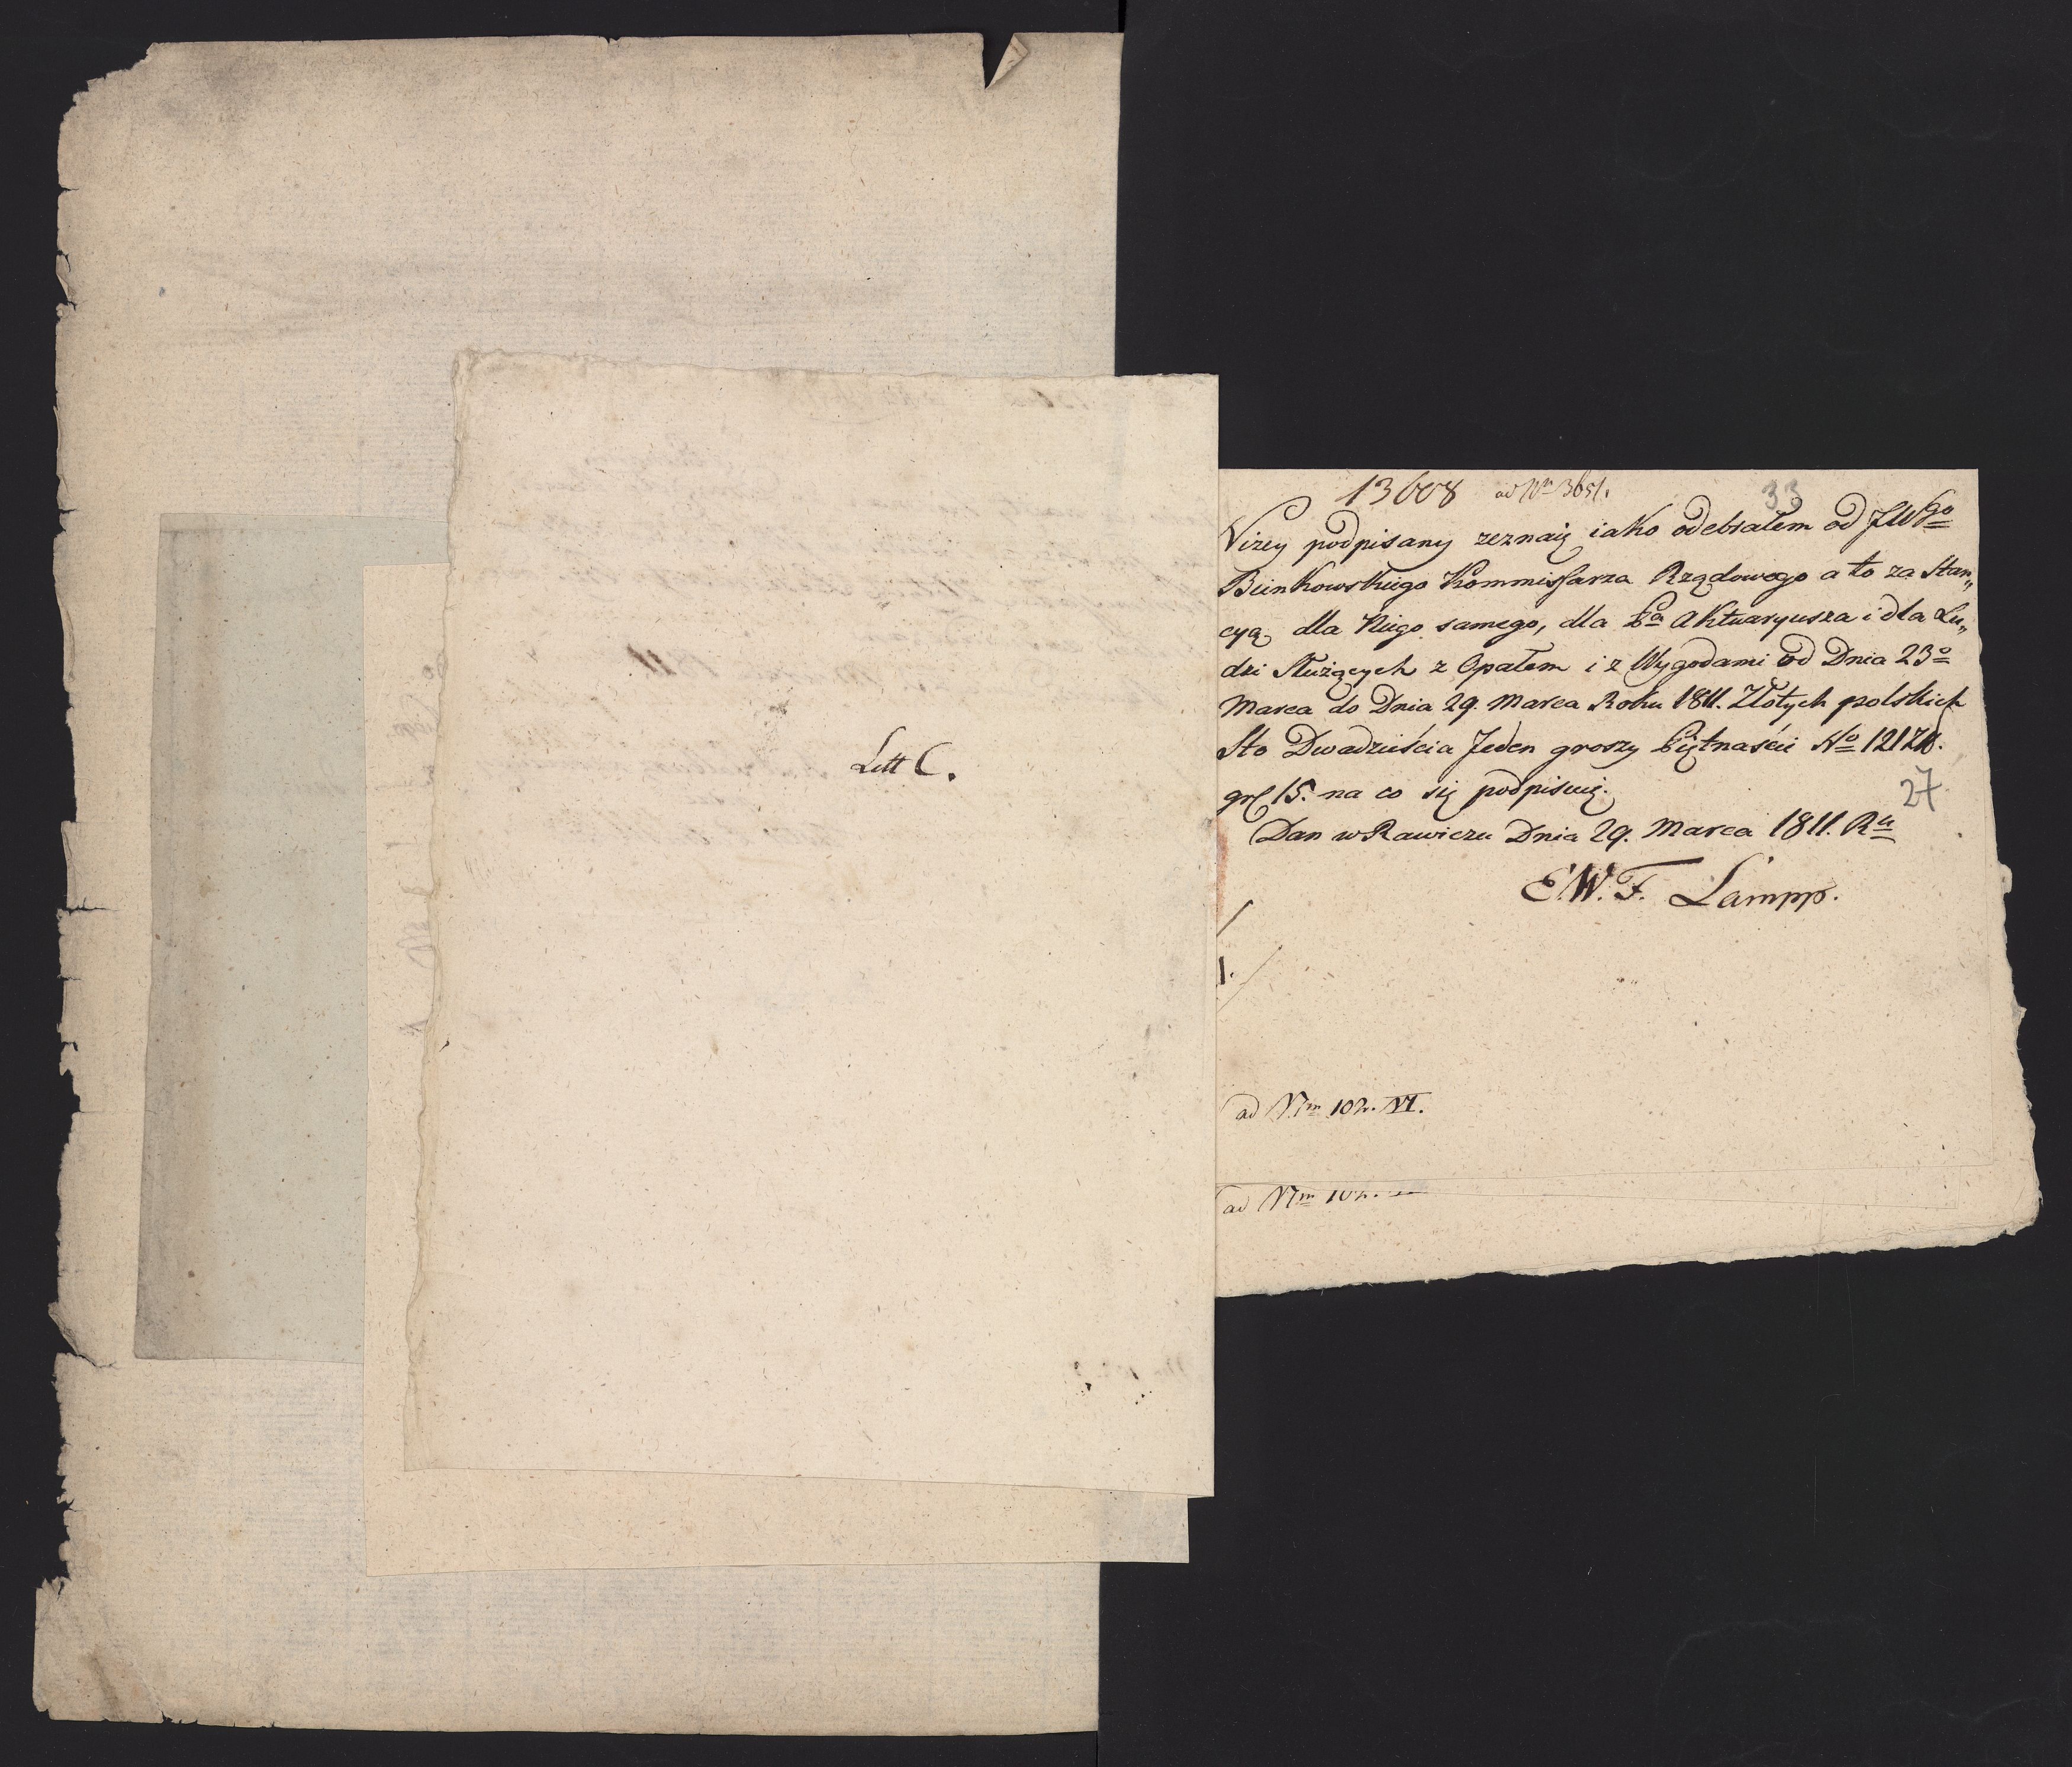 Litt C.
13608 ad Nm 3651.
33
Nizey podpisany zeznaię iako odebrałem od JW go
Bienkowskiego Kommissarza Rządowego a to za Stan„
cyą dla Niego samego, dla Pa Aktuaryusza i dla Lu„
dzi Służących z Opałem i z Wygodami od Dnia 23o
Marca do Dnia 29. Marca Roku 1811. Złotych polskich
Sto Dwadzieścia Jeden groszy Piętnaście No 121
gr 15. na co się podpisuię.
27
Dan w Rawiczu Dnia 29. Marca 1811. Ru
E. W. F. Lampp.
1.
ad Nm 102. VI.
ad Nm 102.